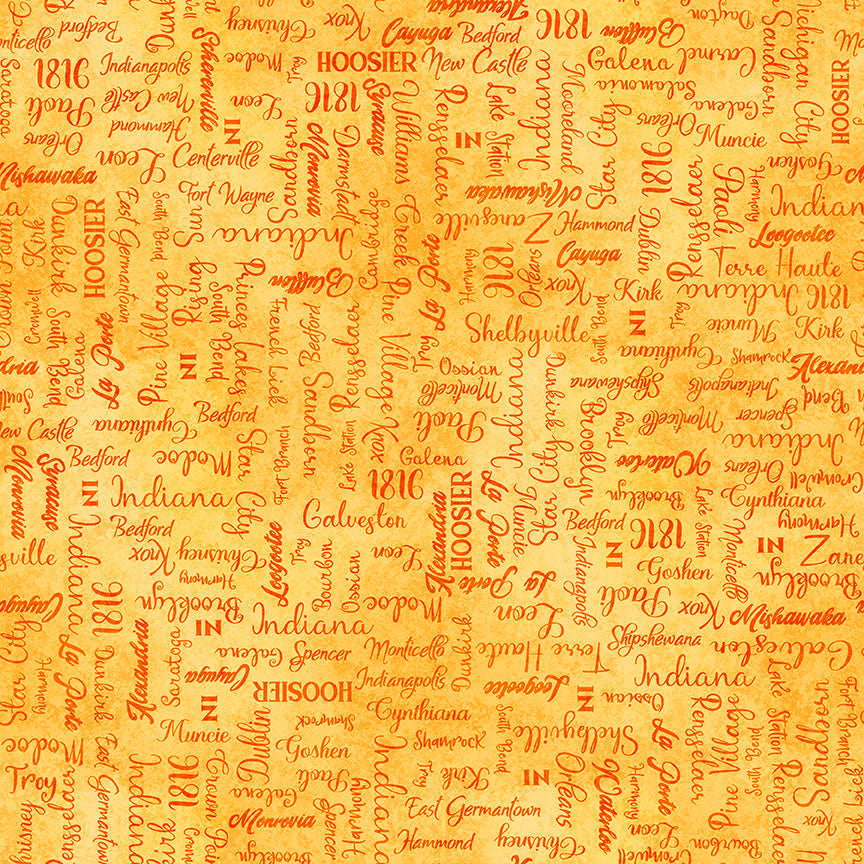 Alexandria
Knox
Chrisney
Cayuga
Bedford
1816
Bluffton
Dayton
Sandborn
Michigan City
Monticello
Bedford
Schererville
Modoc
Troy
HOOSIER
New Castle
Galena
Carmel
HOOSIER
Saratoga
1816
Indianapolis
Paoli
New Castle
Leon
1816
Syracuse
Williams Creek
Rensselaer
Lake Station
Indiana
Mooreland
Salamonia
Galena
Orleans
Muncie
Orleans
Hammond
IN
Leon
Centerville
Sandborn
Monrovia
Darmstadt
IN
Star City
1816
Goshen
Mishawaka
Fort Wayne
Cambridge
Mishawaka
Zanesville
Hammond
Dublin
Rensselaer
Paoli
Harmony
Indiana
Loogootee
Crown Point
Kirk
Dunkirk
HOOSIER
East Germantown
South Bend
Rising Sun
Indiana
La Porte
Harmony
1816
Orleans
Cayuga
Terre Haute
Cromwell
South Bend
Galena
La Porte
Pine Village
South Bend
Princes Lakes
Bluffton
French Lick
Bedford
Rensselaer
Pine Village
Knox
Kirk
Indiana
1816
Troy
Shelbyville
South Bend
IN
Troy
Muncie
Kirk
IN
Troy
Ossian
Cynthiana
Shamrock
Alexandria
Monticello
Indiana
Dunkirk
Shipshewana
Indianapolis
Bend
New Castle
Cynthiana
Bedford
Sandborn
Knox
Paoli
Brooklyn
Troy
Monticello
Spencer
Indiana
Monrovia
Syracuse
Bedford
Modoc
Star City
Fort Branch
Lake Station
Galena
Star City
Waterloo
Orleans
Cromwell
IN
Indiana
1816
HOOSIER
La Porte
Muncie
Brooklyn
Lake Station
Cynthiana
Galveston
Alexandria
Bedford
1816
Monticello
Harmony
Indiana
Bedford
Knox
Chrisney
Loogootee
Troy
Bourbon
Ossian
Leon
Indianapolis
IN
IN
Zanesville
Harmony
La Porte
Goshen
Brooklyn
Cayuga
1816
Brooklyn
Modoc
Leon
Paoli
Knox
Mishawaka
Star City
La Porte
Dunkirk
Alexandria
Saratoga
IN
Indiana
Dunkirk
Terre Haute
Shipshewana
Galveston
Harmony
Galena
Spencer
Monticello
Cayuga
HOOSIER
Indianapolis
Loogootee
IN
Indiana
IN
Cynthiana
South Bend
Ossian
Rensselaer
Pine Village
Lake Station
Sandborn
Fort Branch
Modoc
East Germantown
Muncie
Dublin
Shamrock
Goshen
Shamrock
Shelbyville
La Porte
South Bend
Rensselaer
Troy
Rensselaer
Indiana
1816
Crown Point
Paoli
Indiana
Troy
Kirk
IN
Orleans
Waterloo
Harmony
Galena
East Germantown
Chrisney
Kirk
Monrovia
Spencer
Harmony
Hammond
Chrisney
Leon
Knox
Brooklyn
Bourbon
Cromwell